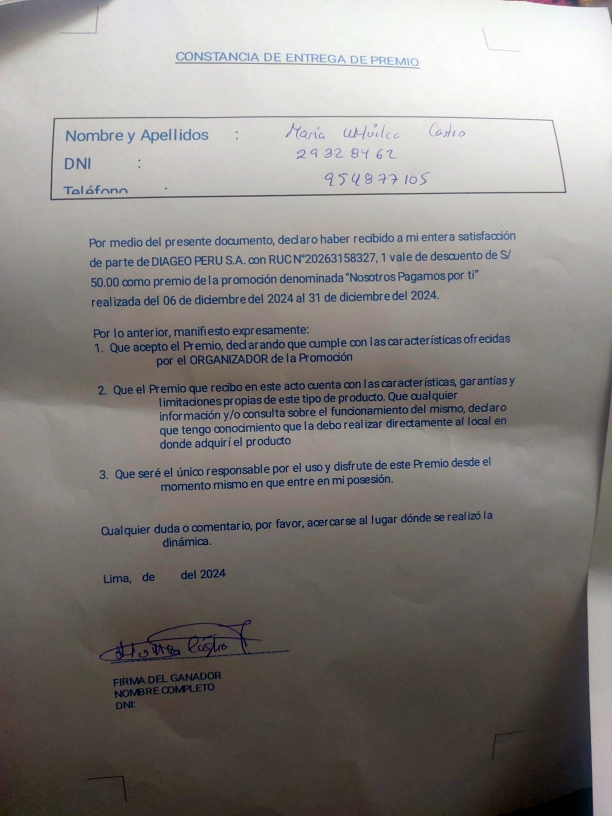 CONSTANCIA DE ENTREGA DE PREMIO
Nombre y Apellidos : María Castro
DNI : 29328462
Teléfono : 954877105
Por medio del presente documento, declaro haber recibido a mi entera satisfacción
de parte de DIAGEO PERU S.A. con RUC N°20263158327, 1 vale de descuento de S/
50.00 como premio de la promoción denominada "Nosotros Pagamos por ti"
realizada del 06 de diciembre del 2024 al 31 de diciembre del 2024.
Por lo anterior, manifiesto expresamente:
1. Que acepto el Premio, declarando que cumple con las características ofrecidas
por el ORGANIZADOR de la Promoción
2. Que el Premio que recibo en este acto cuenta con las características, garantías y
limitaciones propias de este tipo de producto. Que cualquier
información y/o consulta sobre el funcionamiento del mismo, declaro
que tengo conocimiento que la debo realizar directamente al local en
donde adquirí el producto
3. Que seré el único responsable por el uso y disfrute de este Premio desde el
momento mismo en que entre en mi posesión.
Cualquier duda o comentario, por favor, acercarse al lugar dónde se realizó la
dinámica.
Lima, de del 2024
Castro
FIRMA DEL GANADOR
NOMBRE COMPLETO
DNI: